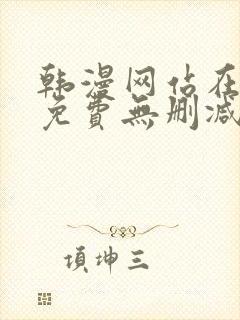 韩漫网站在
免費無删减
項坤三